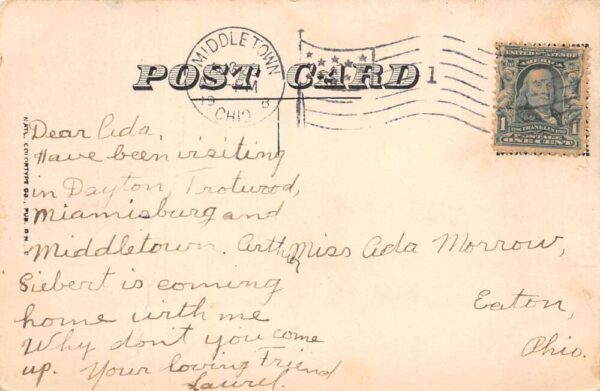 MIDDLETOWN
PM
19 8
OHIO
POST CARD
1
UNITED STATES OF
AMERICA
1 1
FRANKLIN
POSTAGE
ONE CENT
NAT'L COLORTYPE CO., PUB.
Dear Ada,
Have been visiting
in Dayton, Trotwood,
Miamisburg and
Middletown. Arthur
Siebert is coming
home with me
Why don't you come
up. Your loving Friend
Laurel.
Miss Ada Morrow,
Eaton,
Ohio.